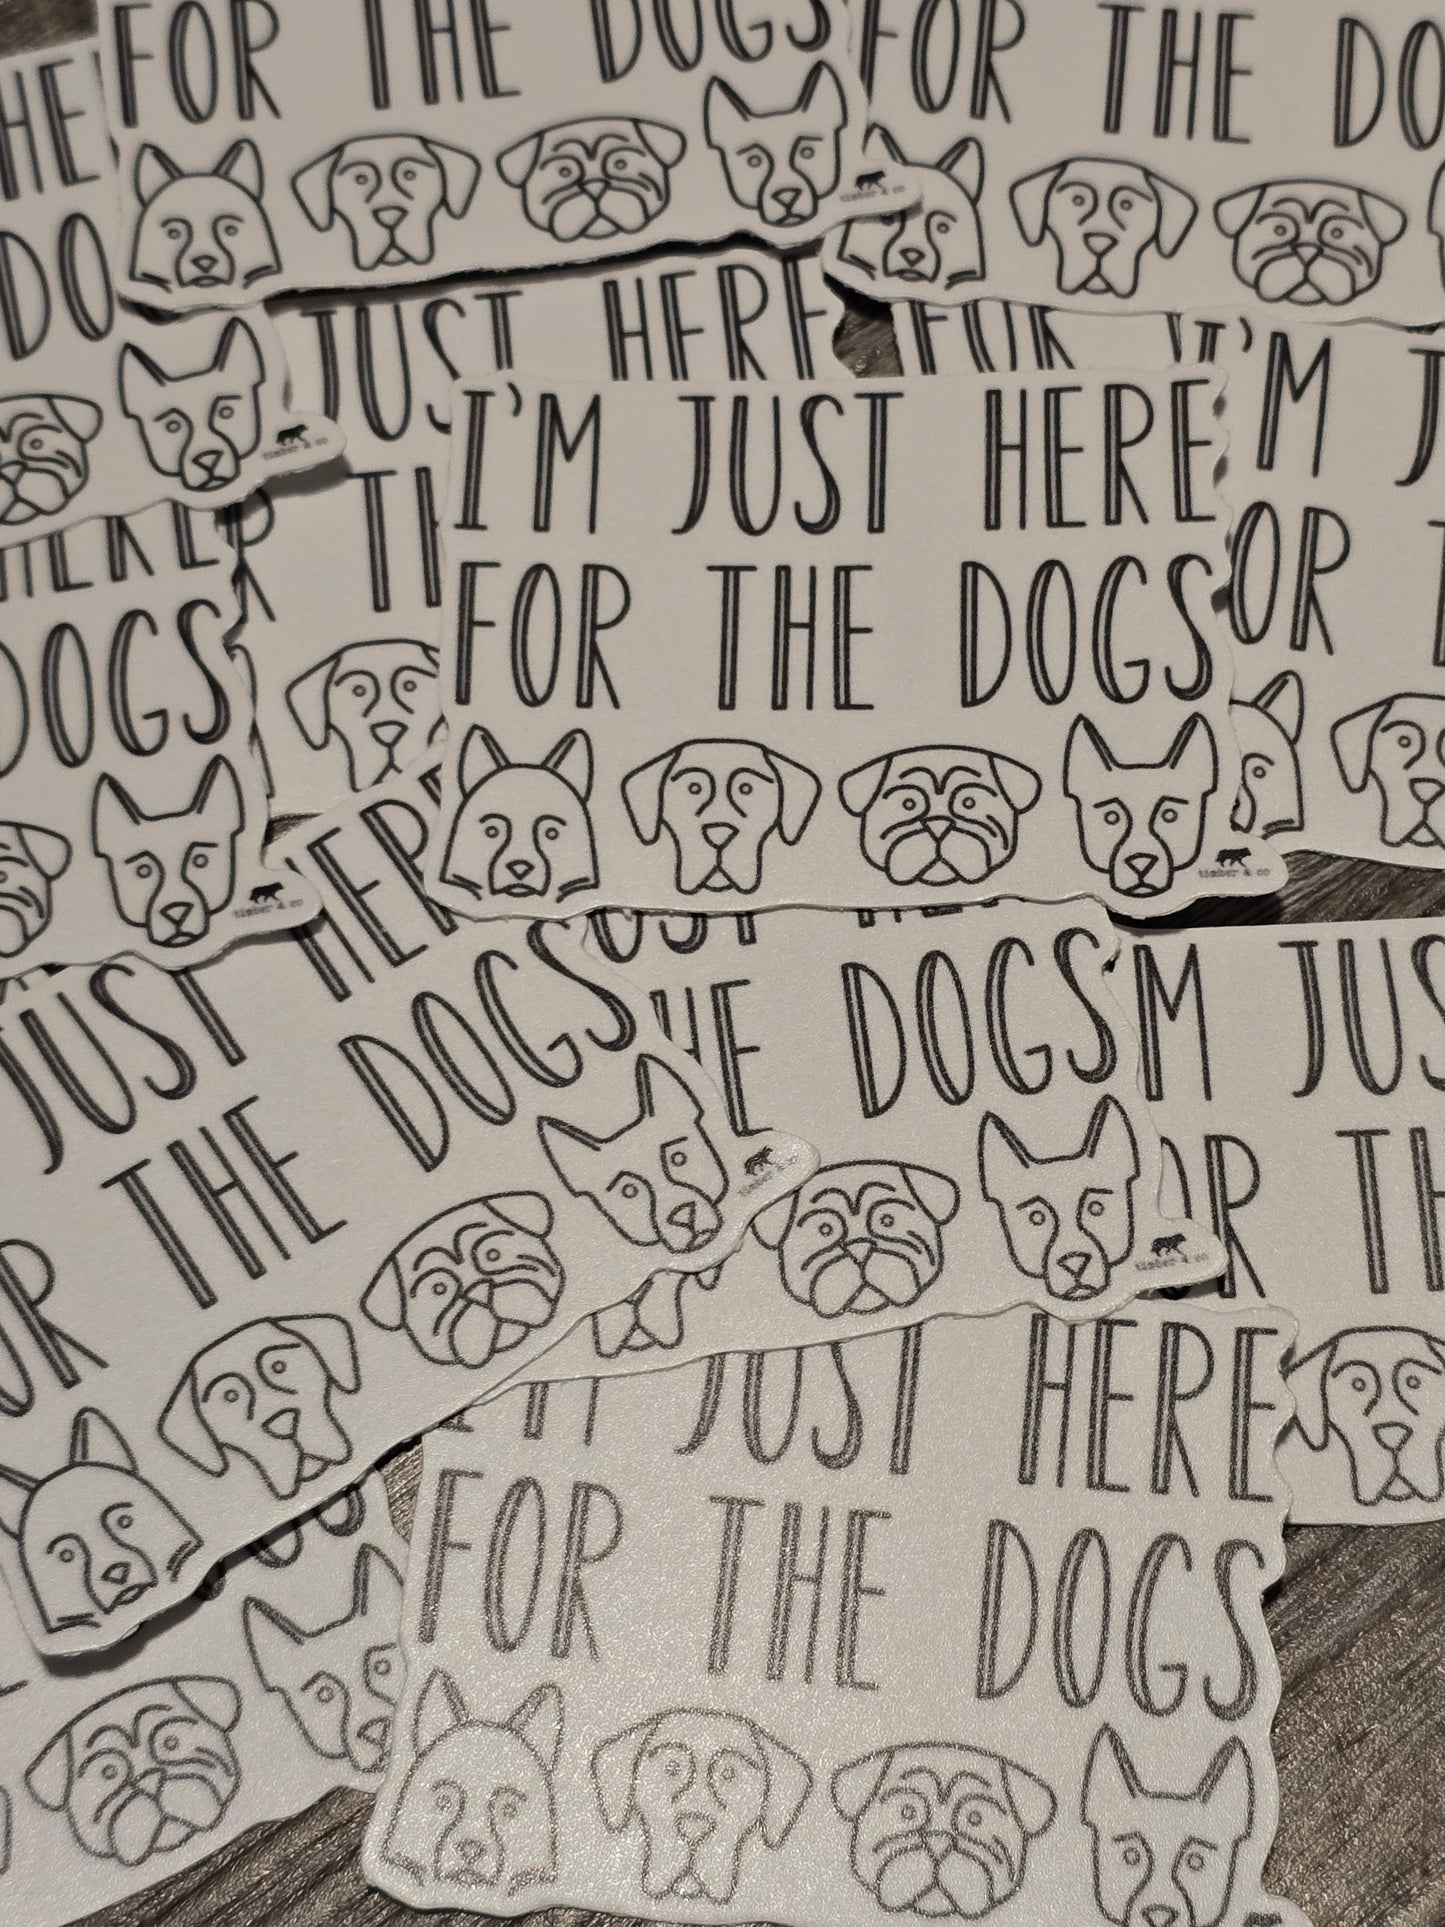 FOR THE DOGS
timber & co
FOR THE DO
HE
DO
timber & co
JUST HERE
FOR
I'M J
OR T
I'M JUST HERE
FOR THE DOGS
timber & co
R TH
HERE
DOGS
timber & co
JUST HERE
OR THE DOGS
timber & co
JUST HE
HE DOGS
timber & co
M JUS
OR TH
I'M JUST HERE
FOR THE DOGS